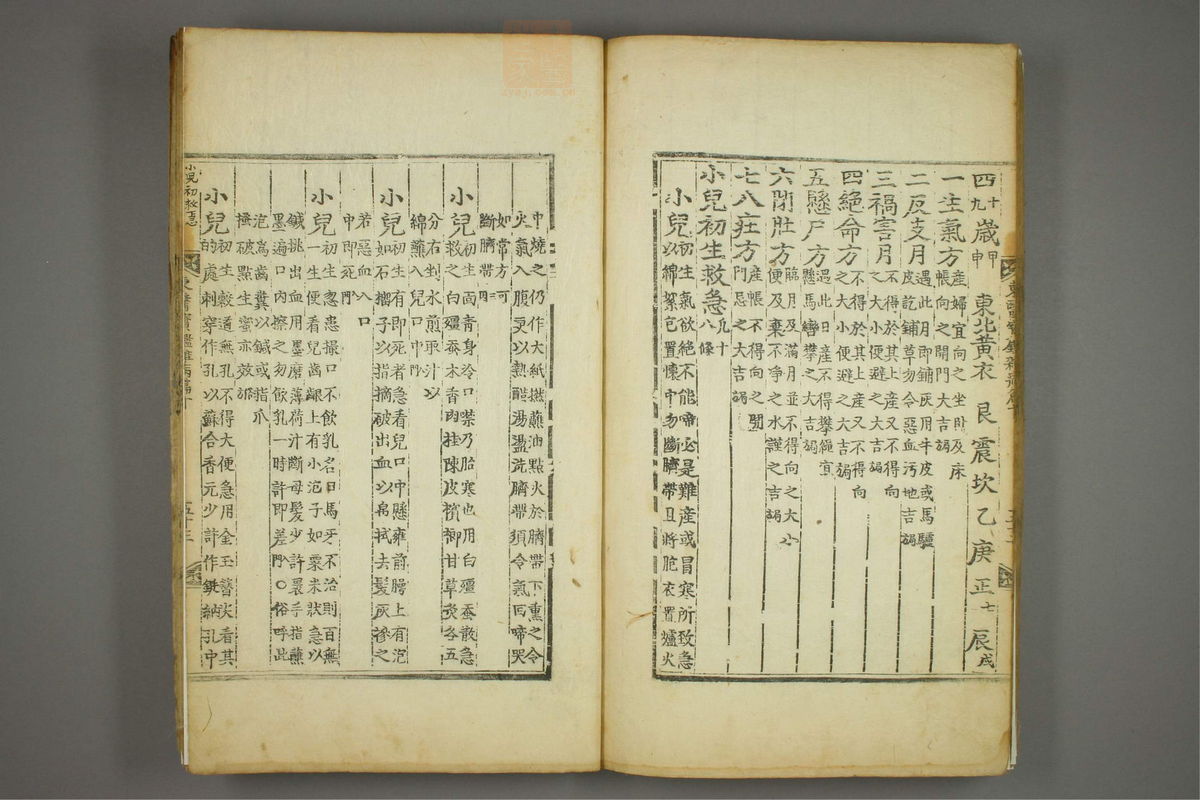 四十九歲 甲申 東北黃衣 艮震坎乙庚 正七 辰戌
一生氣方 產婦宜向之坐臥及床帳向之開門大吉
二反支月 遇此月即鋪灰用牛皮或馬驢皮訖鋪草勿令惡血污地吉
三禍害月 不得於其上產又不得向之大小便避之大吉
四絕命方 不得於其上產又不得向之大小便避之大吉
五懸尸方 遇此日產不得攀繩宜懸馬轡攀之大吉
六閉肚方 臨月及滿月並不得向之大小便及棄不淨之水謹之吉
七八莊方 產帳不得向之開門忌之大吉
小兒初生救急 凡十八條
小兒初生氣欲絕不能啼必是難產或冒寒所致急以綿絮包置懷中勿斷臍帶且將胞衣置爐火
中燒之仍作大紙撚蘸油點火於臍帶下熏之令火氣入腹更以熱醋湯盪洗臍帶須令氣回啼哭
如常方可斷臍帶
小兒初生面青身冷口噤乃胎寒也用白殭蚕散急救之白殭蚕木香肉桂陳皮檳榔甘草灸各五
分右剉水煎取汁以綿蘸入兒口中
小兒初生有即死者急看兒口中懸雍前腭上有泡如石榴子以指摘破出血以帛拭去髮灰摻之
若惡血入口中即死
小兒初生忽患撮口不飲乳名曰馬牙不治則百無一生便看兒齒齦上有小泡子如粟米狀急以
鍼挑出血用墨磨薄荷汁斷母髮少許裹手指蘸墨遍口內擦之勿飲乳一時許即差○俗呼此
泡為齒糞以鍼或指爪搔破點生蜜亦效
小兒初生穀道無孔不得大便急用金玉簪尖看其的處刺穿作孔以蘇合香元少許作鋌納孔中
小兒初救急
東醫寶鑑雜病篇十
五十三